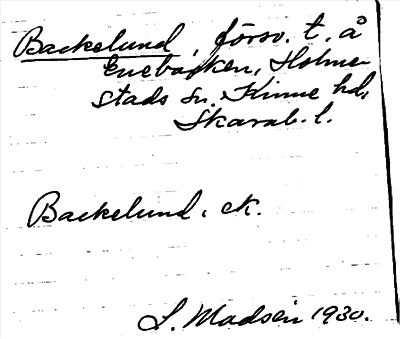 Backelund, försv. t. å
Enebacken, Holme-
stads sn. Kinne hd,
Skarab. l.
Backelund, ek.
S. Madsén 1930.